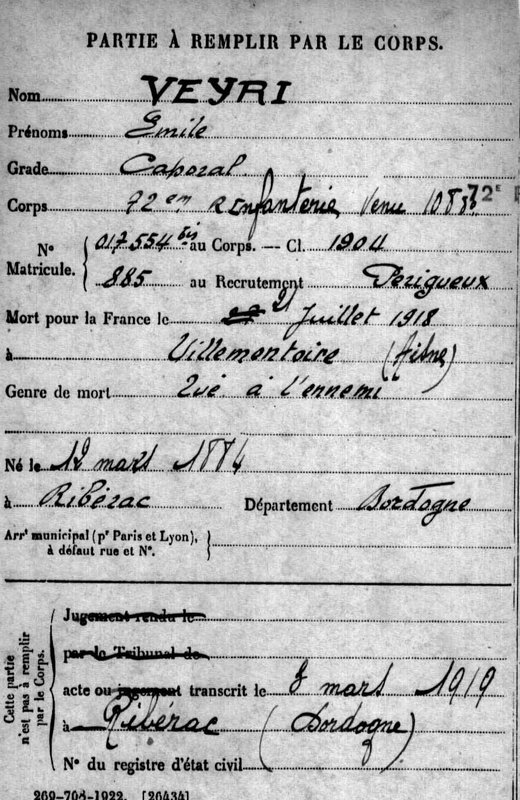 PARTIE À REMPLIR PAR LE CORPS.
Nom VEYRI
Prénoms Emile
Grade Caporal
Corps 72 em R Infanterie Venu 72E
No Matricule. 017554 bis au Corps. — Cl. 1904
885 au Recrutement Périgueux
Mort pour la France le 21 Juillet 1918
à Villemontoire (Aisne)
Genre de mort Tué à l'ennemi
Né le 12 mars 1884
à Ribérac Département Dordogne
Arrt municipal (pr Paris et Lyon),
à défaut rue et No.
Cette partie
n'est pas à remplir
par le Corps.
Jugement rendu le
par le Tribunal de
acte ou jugement transcrit le mars 1919
à Ribérac (Dordogne)
No du registre d'état civil
269-708-1922. [26434]